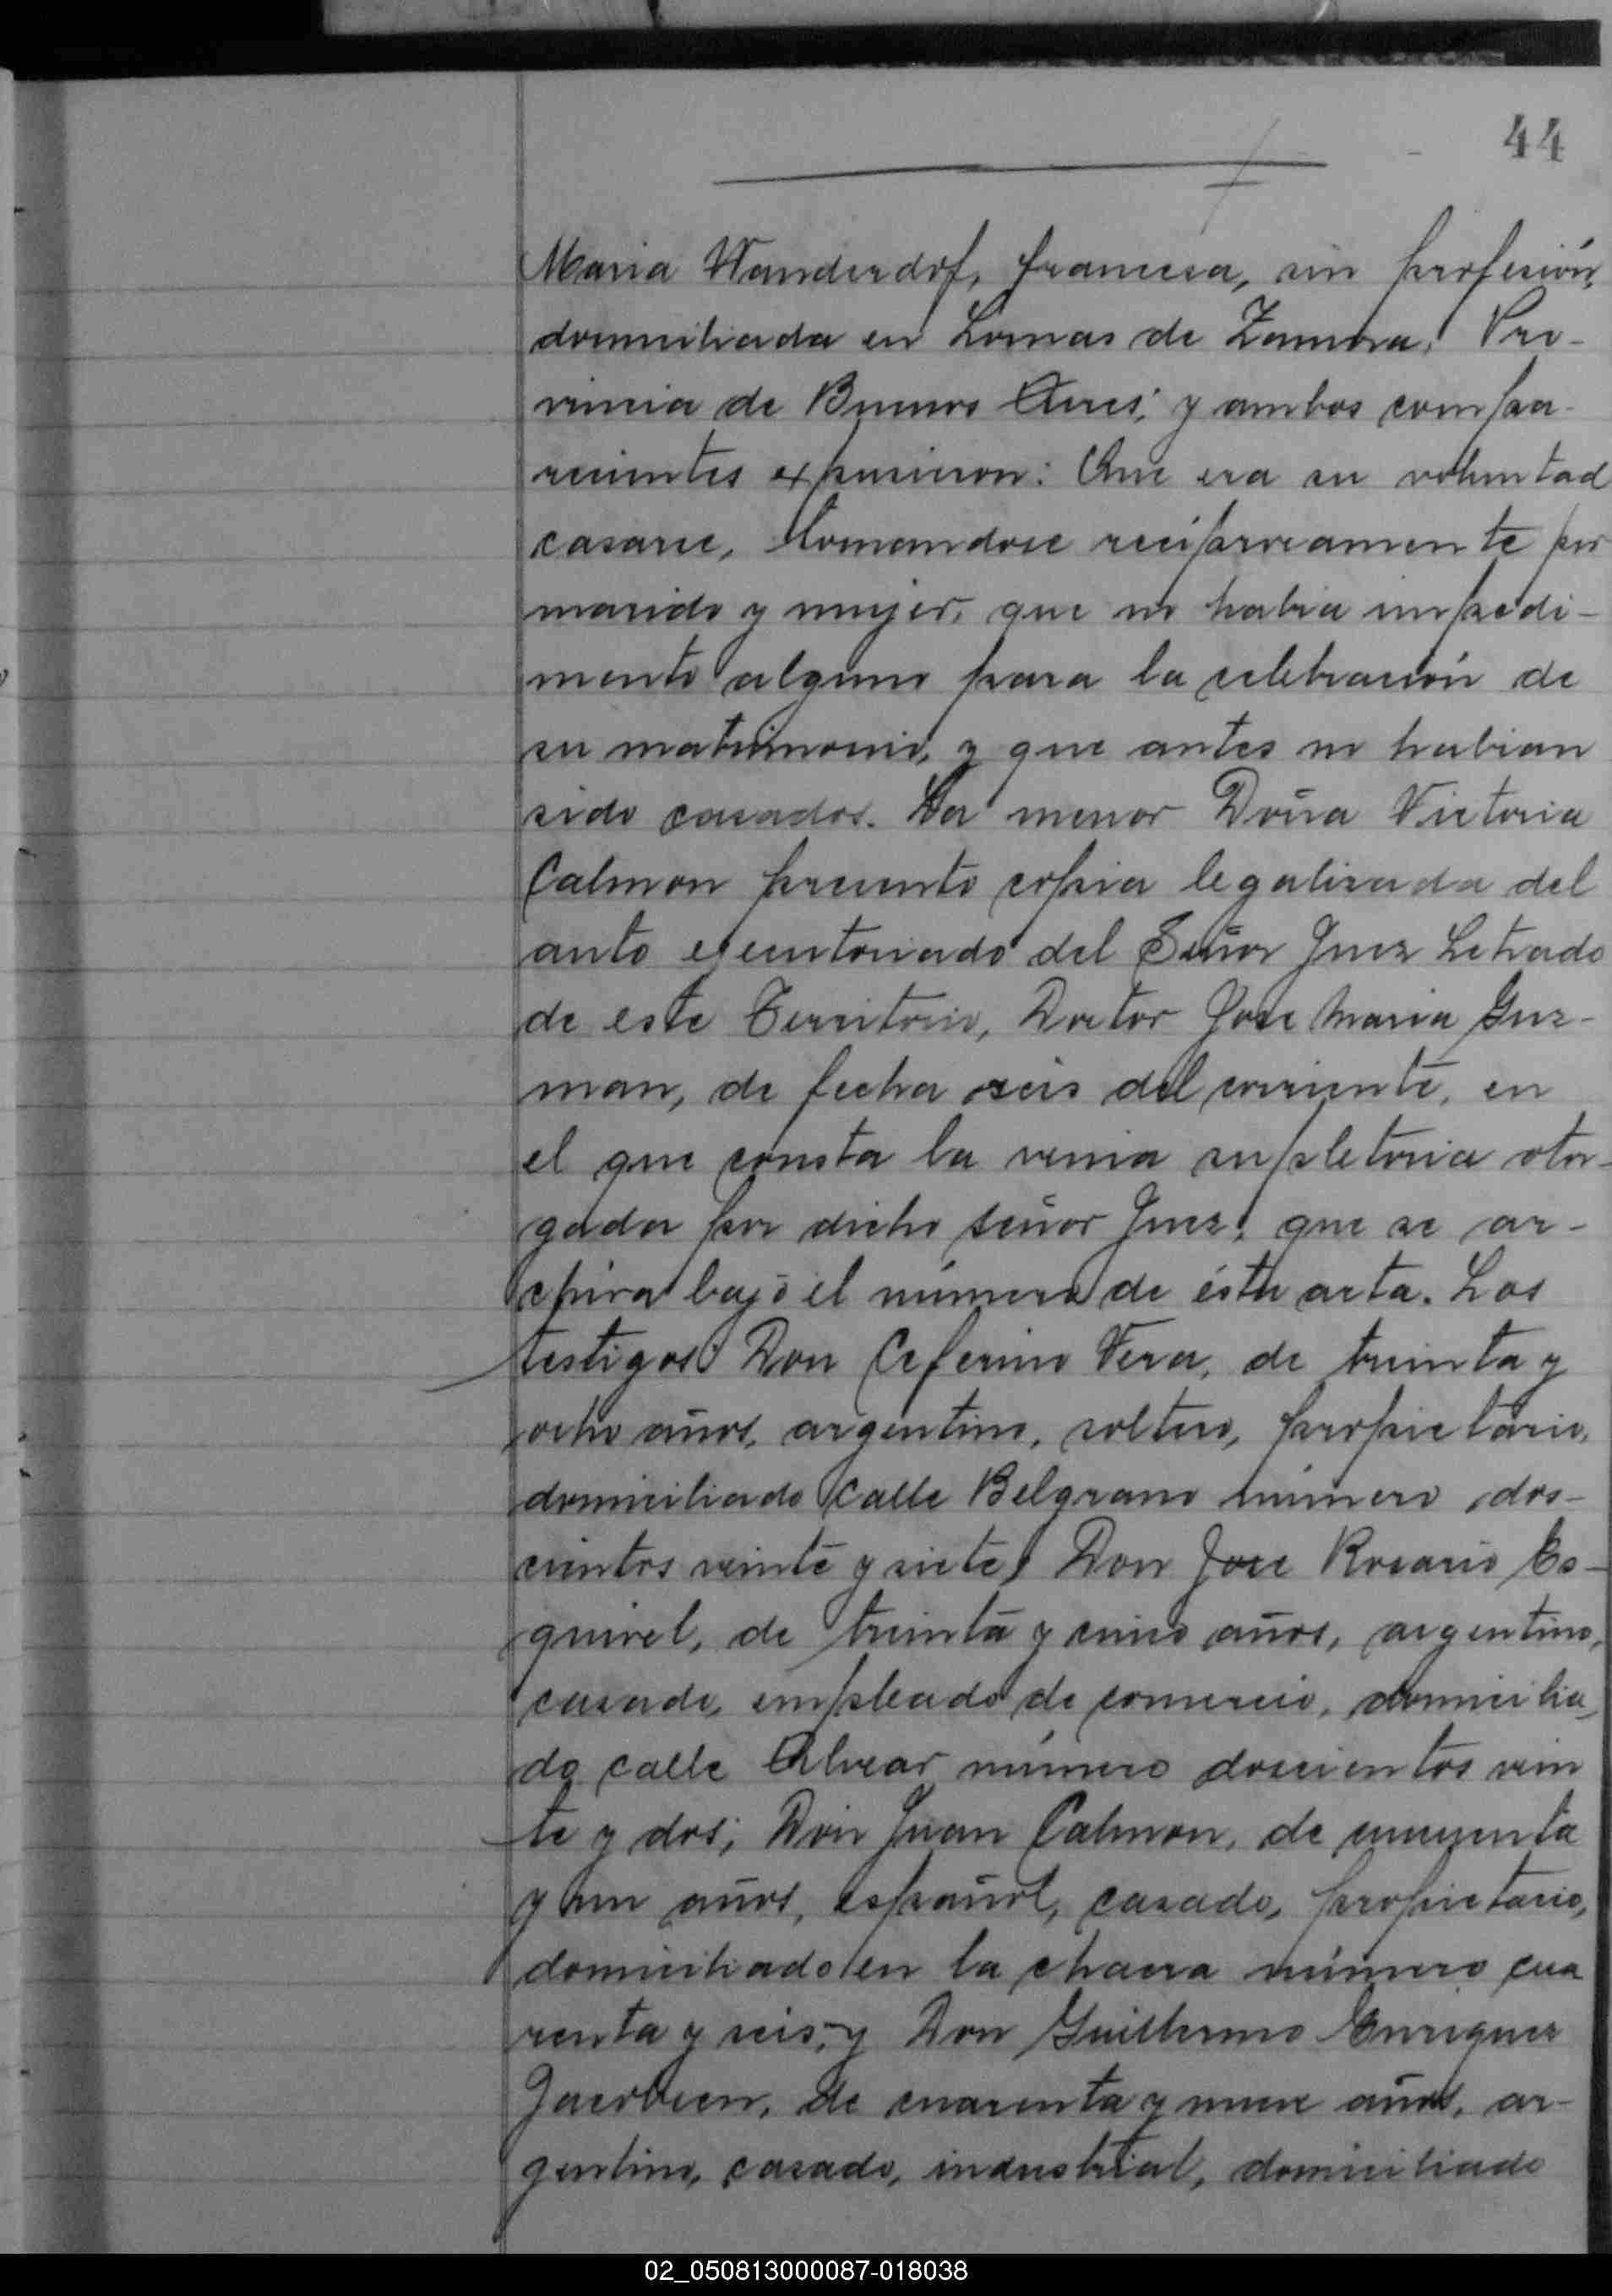 44
Maria Wanderdof, francesa, sin profesión,
domiciliada en Lomas de Zamora, Pro-
vincia de Buenos Aires; y ambos compa-
recientes expusieron: Que era su voluntad
casarse, tomandose reciprocamente por
marido y mujer, que no habia impedi-
mento alguno para la celebración de
su matrimonio, y que antes no habian
sido casados. La menor Doña Victoria
Calmon presento copia legalizada del
auto ejecutoriado del Señor Juez Letrado
de este Territorio, Doctor Jose Maria Guz-
man, de fecha seis del corriente, en
el que consta la venia supletoria otor-
gada por dicho señor Juez, que se ar-
chiva bajo el número de ésta acta. Los
testigos Don Ceferino Vera, de treinta y
ocho años, argentino, soltero, propietario,
domiciliado calle Belgrano número dos-
cientos veinte y siete; Don Jose Rosario Es-
quivel, de treinta y cinco años, argentino,
casado, empleado de comercio, domicilia-
do calle Alvear número doscientos vein
te y dos; Don Juan Calmon, de cincuenta
y un años, español, casado, propietario,
domiciliado en la chacra número cua
renta y seis, y Don Guillermo Enriquez
Jacobsen, de cuarenta y nueve años, ar-
gentino, casado, industrial, domiciliado
02_050813000087-018038